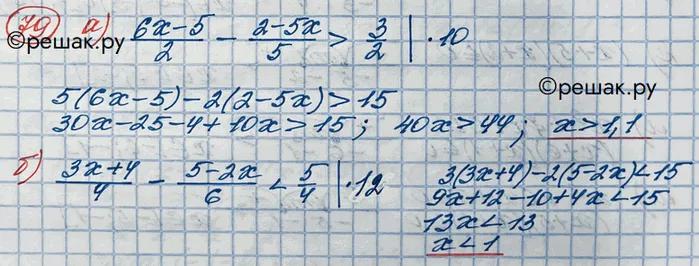 79) а) (6x-5)/2 - (2-5x)/5 > 3/2 | ·10
©решак.ру
5(6x-5)-2(2-5x)>15
©решак.ру
30x-25-4+10x>15; 40x>44; x>1,1
б) (3x+4)/4 - (5-2x)/6 < 5/4 | ·12
3(3x+4)-2(5-2x)<15
9x+12-10+4x<15
13x<13
x<1